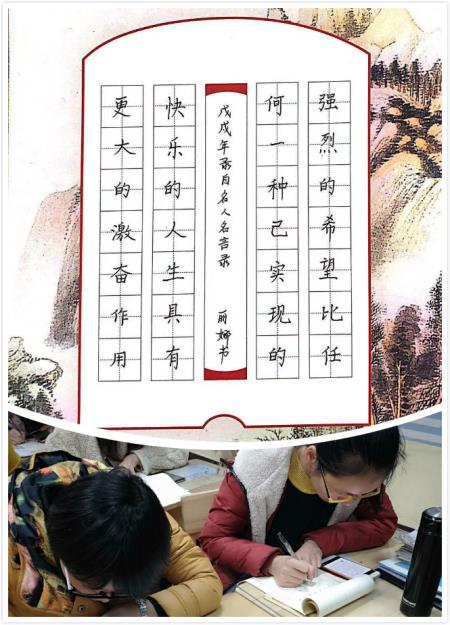 强烈的希望比任
何一种己实现的
戊戌年录自名人名言录 丽娜书
快乐的人生具有
更大的激奋作用